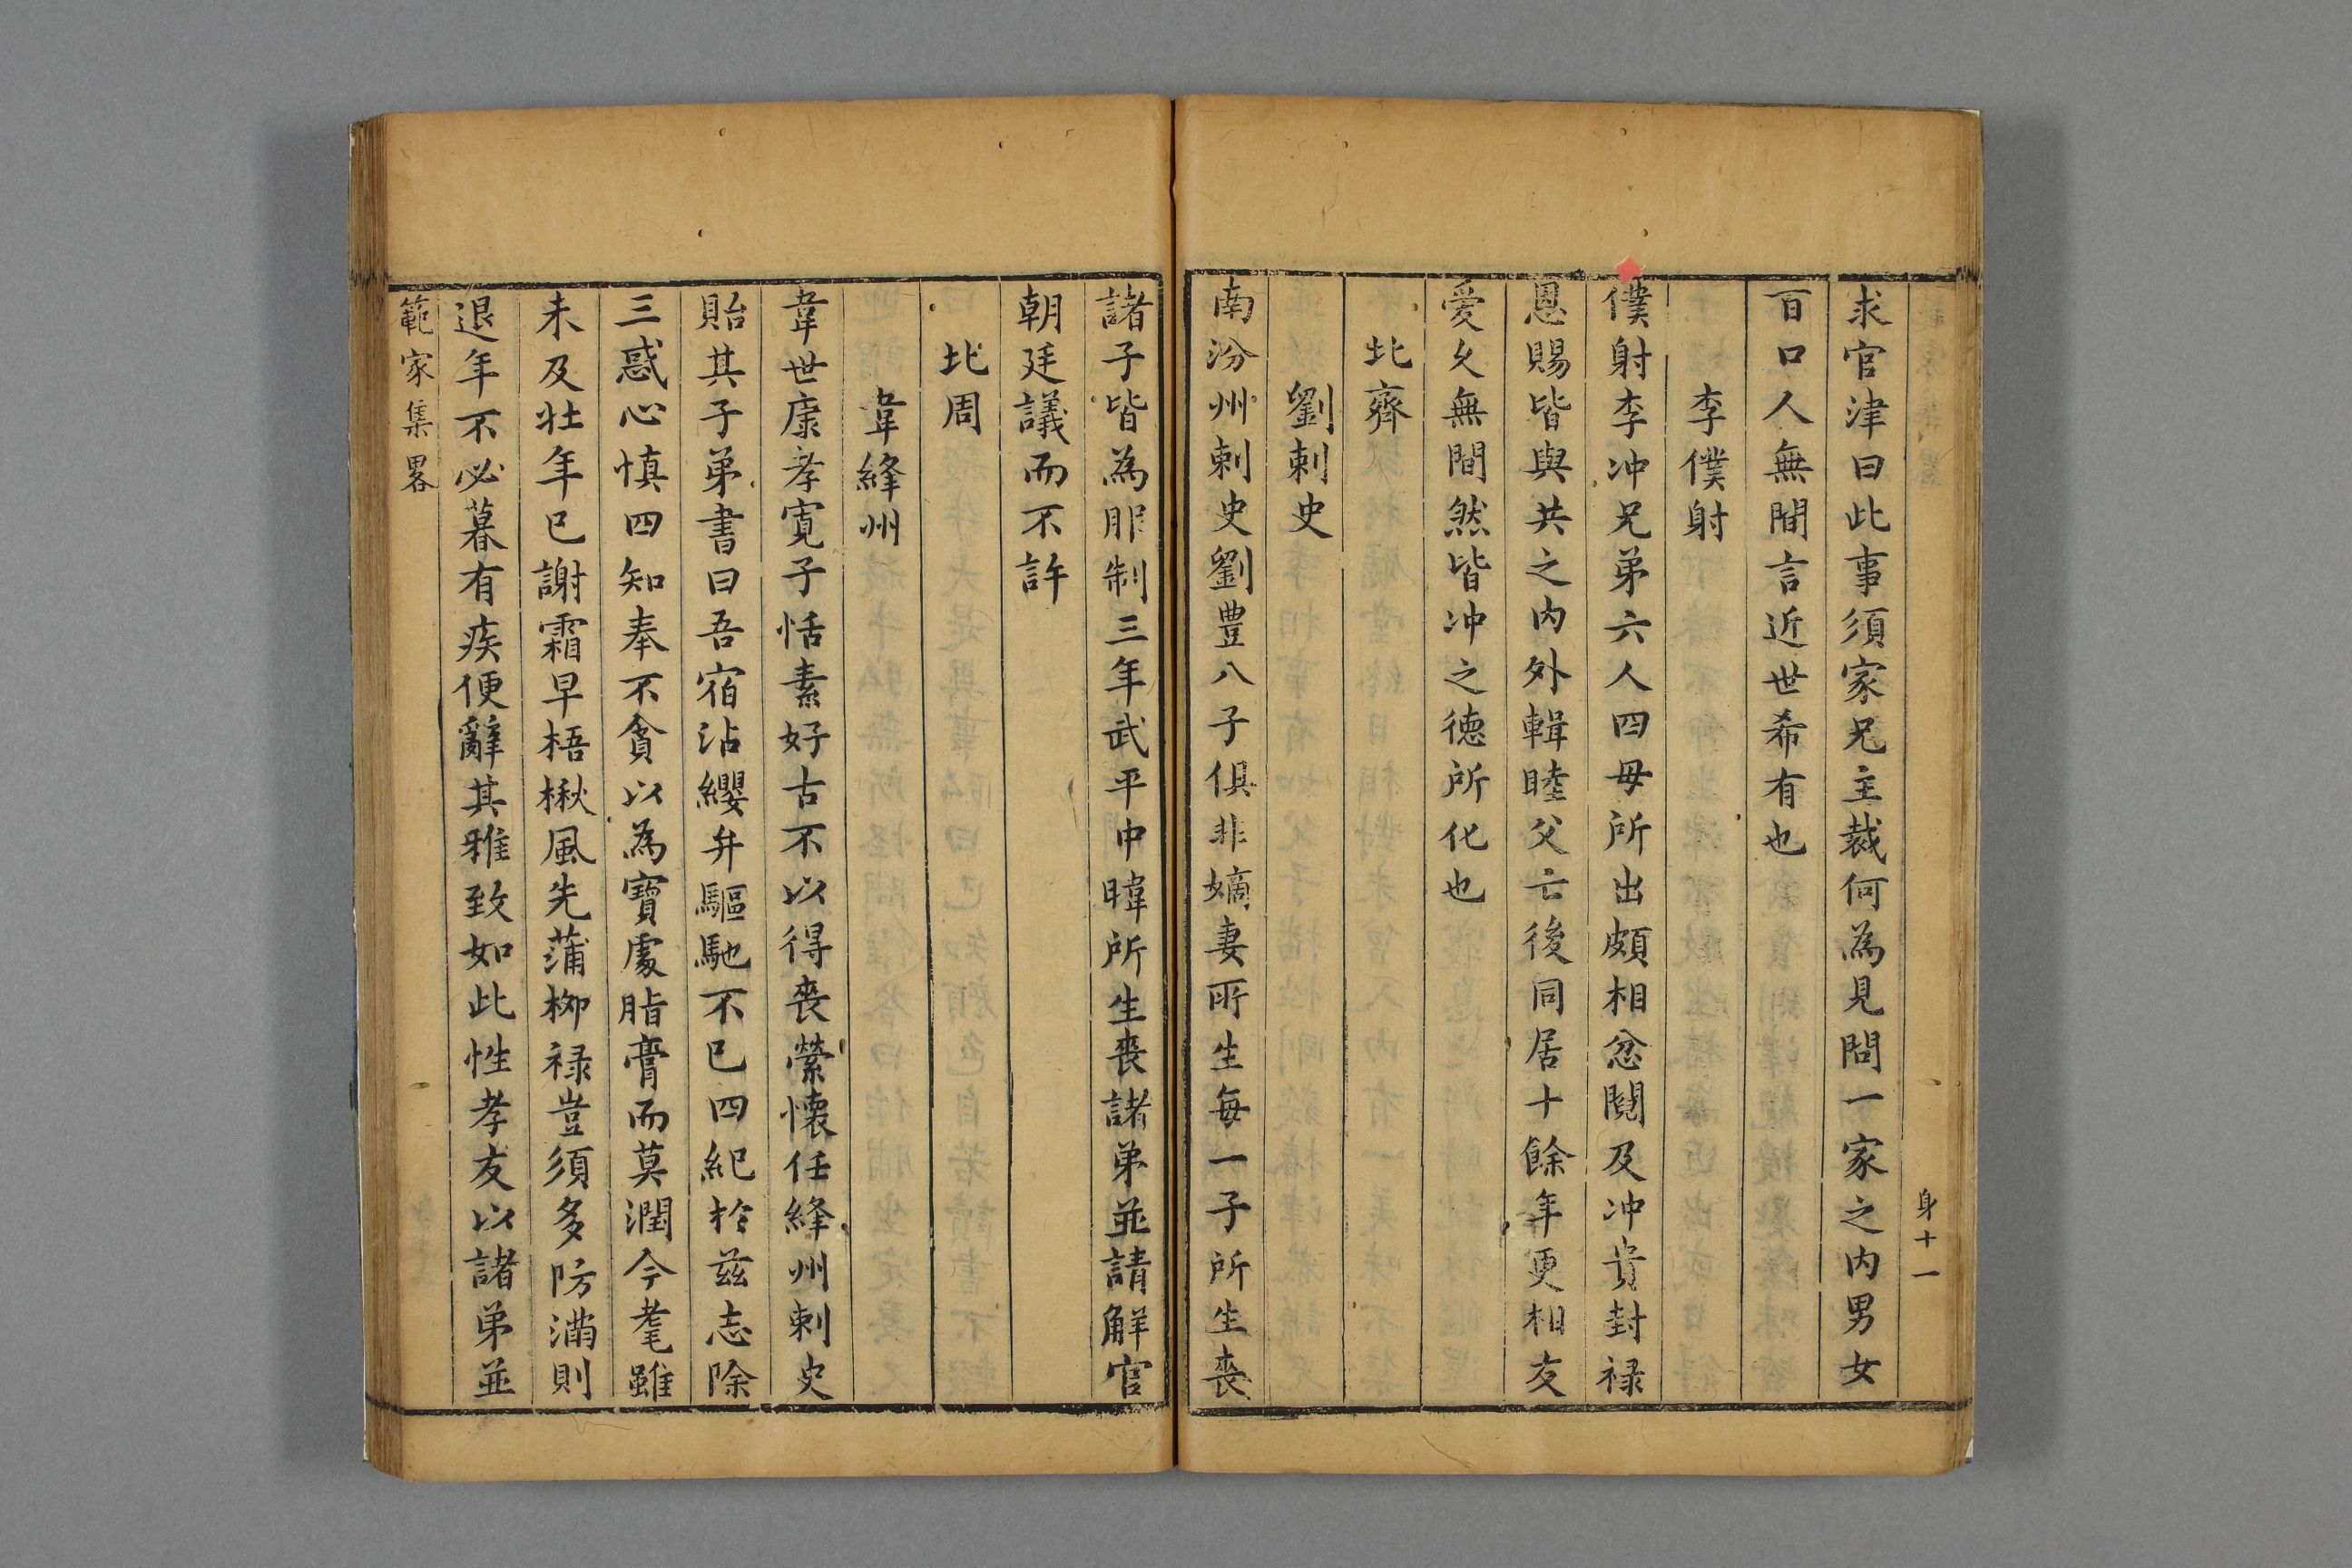 身十一
求官津曰此事須家兄主裁何為見問一家之内男女
百口人無間言近世希有也
李僕射
僕射李冲兄弟六人四毋所出頗相忿䦧及冲貴封禄
恩賜皆與共之内外輯睦父亡後同居十餘年更相友
愛乆無間然皆冲之德所化也
北齊
劉刺史
南汾州刺史劉豊八子俱非嫡妻所生每一子所生喪
諸子皆為服制三年武平中暐所生喪諸弟並請解官
朝廷議而不許
北周
韋絳州
韋世康孝寬子恬素好古不以得喪縈懷任絳州刺史
貽其子弟書曰吾宿沾纓弁驅馳不已四紀於兹志除
三惑心慎四知奉不貪以為寶處脂膏而莫潤今耄雖
未及壮年已謝霜早梧楸風先蒲栁禄豈須多防滿則
退年不必暮有疾便辭其雅致如此性孝友以諸弟並
範家集畧